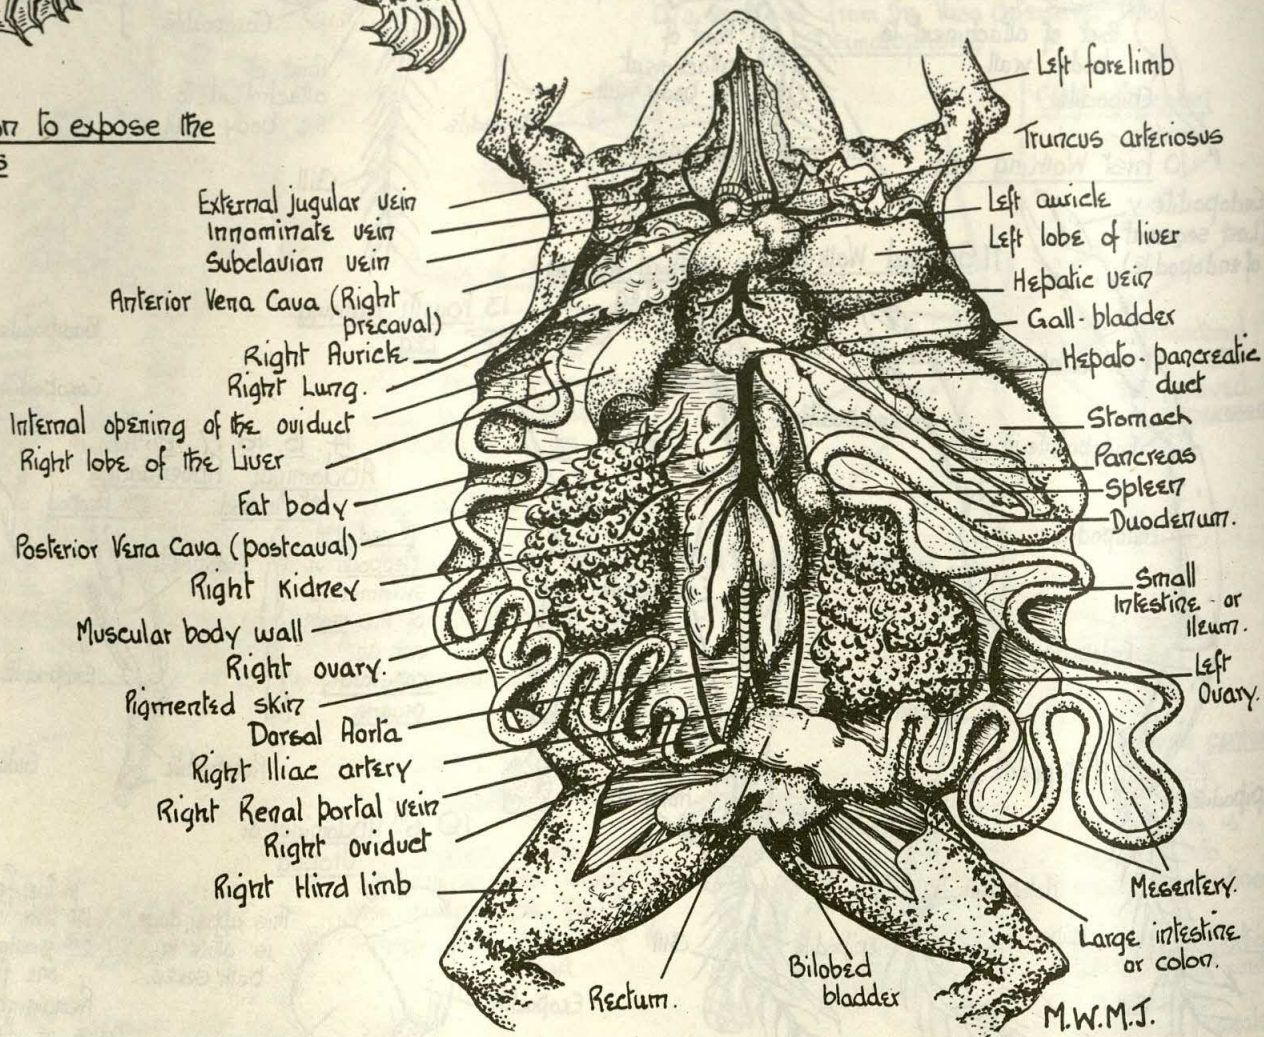 n to expose the
s
External jugular vein
Innominate vein
Subclavian vein
Anterior Vena Cava (Right
precaval)
Right Auricle
Right Lung.
Internal opening of the oviduct
Right lobe of the Liver
Fat body
Posterior Vena Cava (postcaval)
Right Kidney
Muscular body wall
Right ovary.
Pigmented skin
Dorsal Aorta
Right Iliac artery
Right Renal portal vein
Right oviduct
Right Hind limb
Left forelimb
Truncus arteriosus
Left auricle
Left lobe of liver
Hepatic vein
Gall-bladder
Hepato-pancreatic
duct
Stomach
Pancreas
Spleen
Duodenum.
Small
Intestine or
Ileum.
Left
Ovary.
Mesentery.
Large intestine
or colon.
Bilobed
bladder
Rectum.
M.W.M.J.